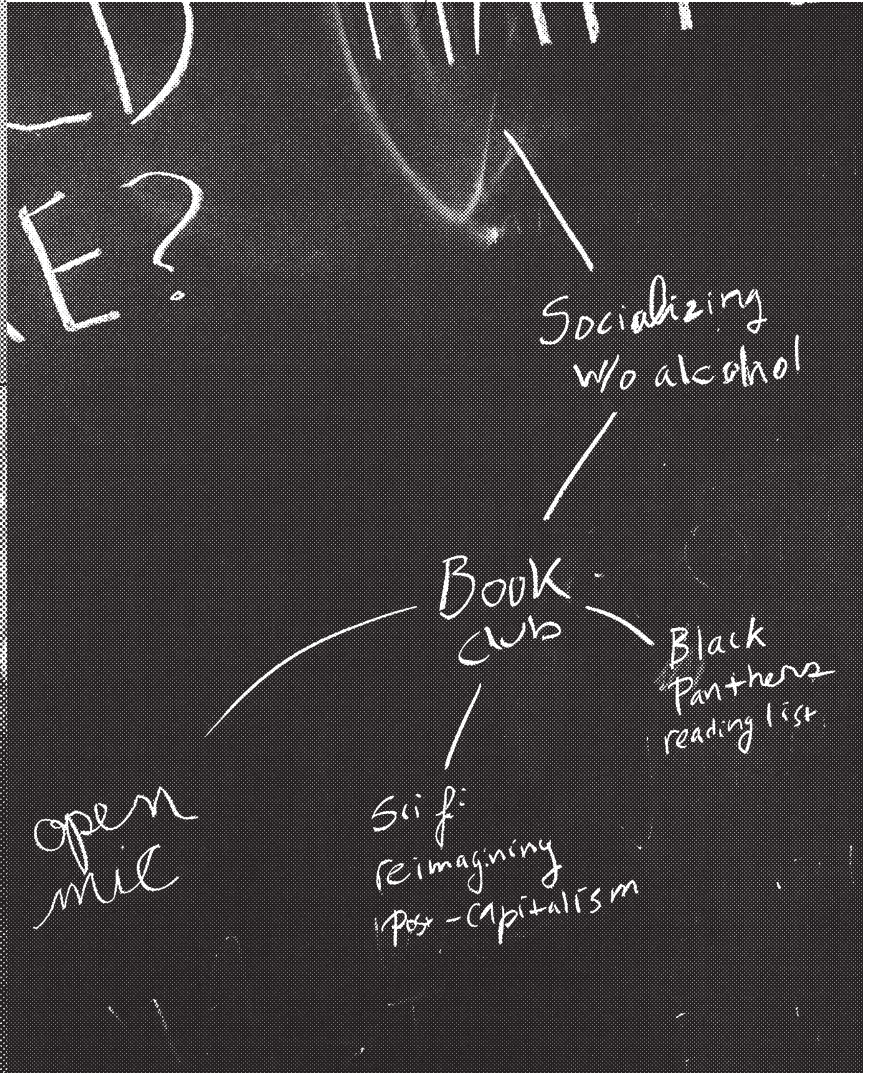 E?
Socializing
w/o alcohol
Book
club
Black
Panthers
reading list
open
mic
Sci fi
reimagining
post-capitalism